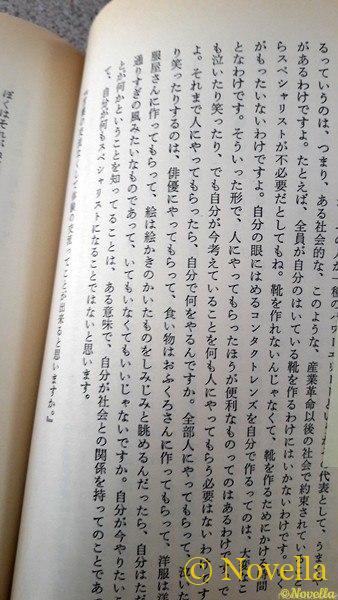 の人が
代表として、うまくや
るっていうのは、つまり、ある社会的な、このような、産業革命以後の社会で約束されてい
があるわけですよ。たとえば、全員が自分のはいている靴を作るわけにはいかないわけです。
らスペシャリストが不必要だとしてもね。靴を作れないんじゃなくて、靴を作るためにかけ 間
がもったいないわけですよ。自分の眼にはめるコンタクトレンズを自分で作るってのは、大変こ
となわけです。そういった形で、人にやってもらったほうが便利なものってのはあるわけで
も泣いたり笑ったり、でも自分が今考えていることを何も人にやってもらう必要はないわ
よ。それまで人にやってもらったら、自分で何をやるんですか。全部人にやってもらって、泣いた
り笑ったりするのは、俳優にやってもらって、食い物はおふくろさんに作ってもらって、洋服は洋
服屋さんに作ってもらって、絵は絵かきのかいたものをしみじみと眺めるんだったら、自分はただ
通りすぎの風みたいなものであって、いてもいなくてもいいじゃないですか。自分が今やりたいこ
とが何かということを知ってることは、ある意味で、自分が社会との関係を持ってのことであ
て、自分が何もスペシャリストになることではないと思います。
ってことが出来ると思いますか。』
ぼくはそれが
© Novella
©Novella